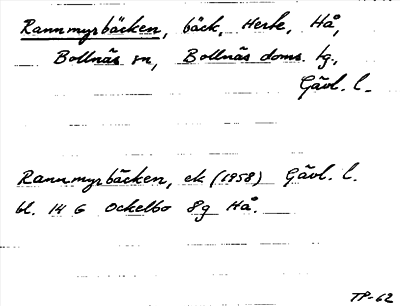 Rannmyrbäcken, bäck, Herte, Hå,
Bollnäs sn, Bollnäs doms. kg.,
Gävl. l.
Rannmyrbäcken, ek (1958) Gävl. l.
bl. 14 G Ockelbo 8g Hå.
TP-62